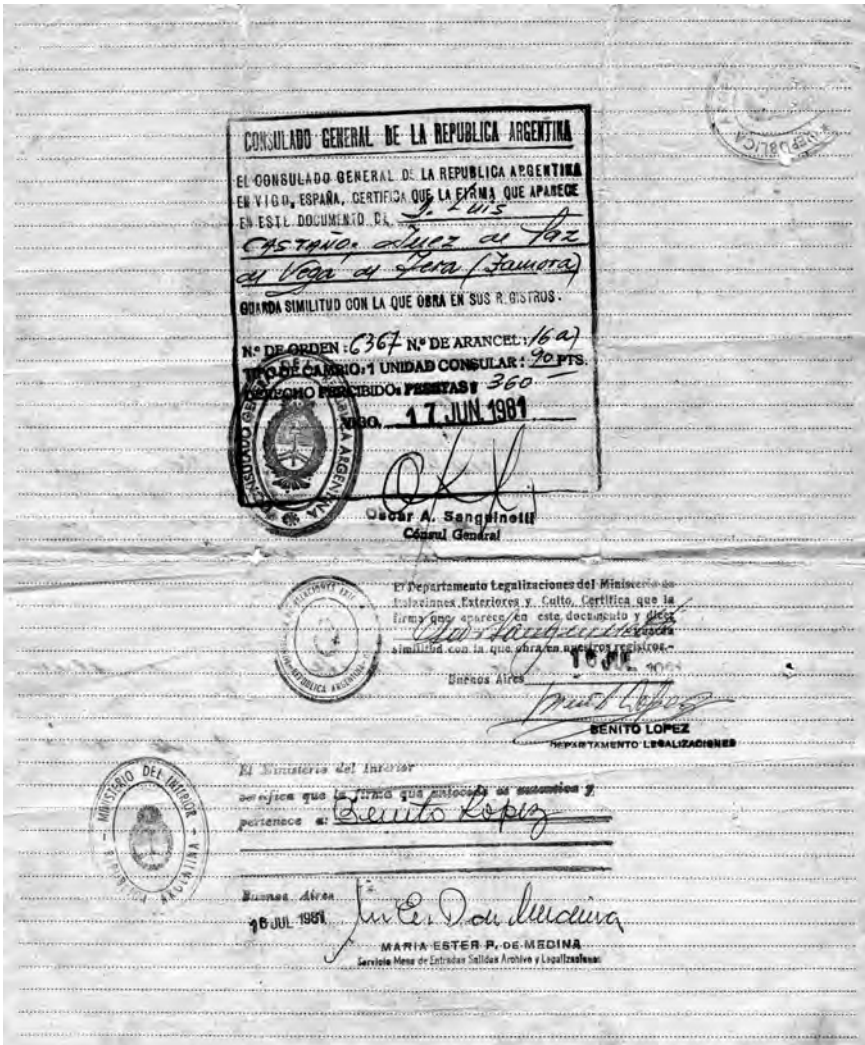 REPUBLICA
CONSULADO GENERAL DE LA REPUBLICA ARGENTINA
EL CONSULADO GENERAL DE LA REPUBLICA ARGENTINA
EN VIGO, ESPAÑA, CERTIFICA QUE LA FIRMA QUE APARECE
EN ESTE DOCUMENTO DE J. Luis
CASTAÑO. Juez de Paz
de Vega de Tera (Zamora)
GUARDA SIMILITUD CON LA QUE OBRA EN SUS REGISTROS.
N.º DE ORDEN: 6367 N.º DE ARANCEL: 16 a)
TIPO DE CAMBIO: 1 UNIDAD CONSULAR: 90 PTS.
DERECHO PERCIBIDO: PESETAS: 360
VIGO, 17 JUN. 1981
CONSULADO GENERAL DE LA REPUBLICA ARGENTINA
Oscar A. Sanguinetti
Cónsul General
El Departamento Legalizaciones del Ministerio de
Relaciones Exteriores y Culto, Certifica que la
firma que aparece en este documento y dice
Oscar Sanguinetti guarda
similitud con la que obra en nuestros registros.-
16 JUL 1981
Buenos Aires
REPUBLICA ARGENTINA
Benito Lopez
BENITO LOPEZ
DEPARTAMENTO LEGALIZACIONES
El Ministerio del Interior
certifica que la firma que antecede es autentica y
pertenece a: Benito Lopez
MINISTERIO DEL INTERIOR
REPUBLICA ARGENTINA
Buenos Aires
16 JUL 1981
M. E. P. de Medina
MARIA ESTER P. DE MEDINA
Servicio Mesa de Entradas Salidas Archivo y Legalizaciones